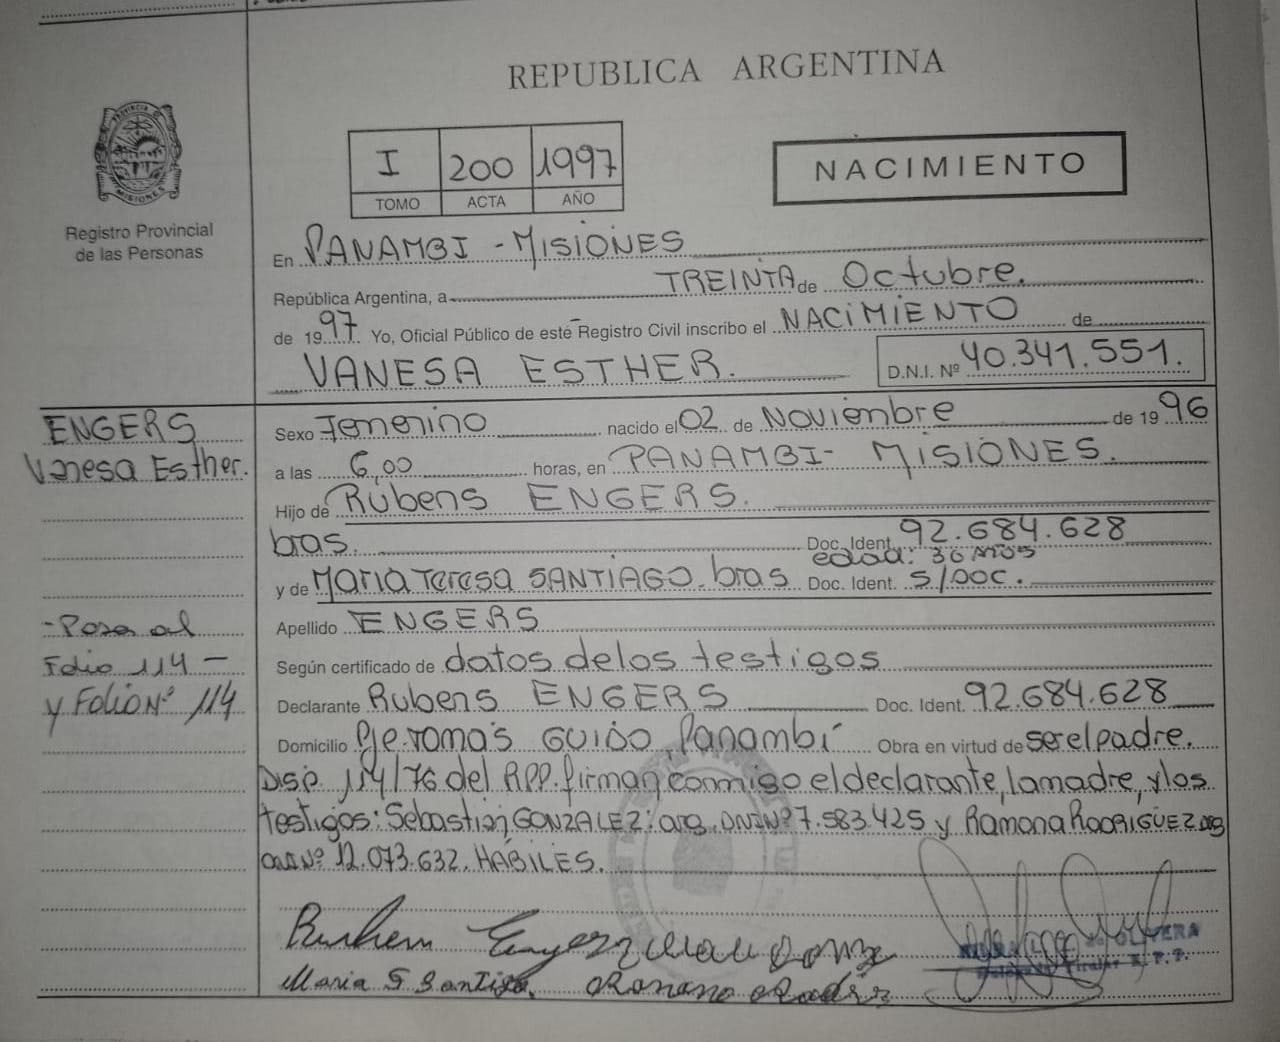 REPUBLICA ARGENTINA
PROVINCIA DE MISIONES
Registro Provincial
de las Personas
I 200 1997
TOMO ACTA AÑO
NACIMIENTO
En PANAMBI - MISIONES
República Argentina, a TREINTA de Octubre.
de 1997. Yo, Oficial Público de este Registro Civil inscribo el NACIMIENTO de
VANESA ESTHER. D.N.I. Nº 40.341.551.
ENGERS
Vanesa Esther.
Sexo Femenino nacido el 02 de Noviembre de 1996
a las 6,00 horas, en PANAMBI- MISIONES.
Hijo de Rubens ENGERS.
bras. Doc. Ident. 92.684.628
edad: 36 AÑOS
y de MARIA TERESA SANTIAGO. bras Doc. Ident. S/DOC.
Apellido ENGERS
- Pasa al
Folio 114 -
y FOLIO Nº 114
Según certificado de datos de los testigos
Declarante Rubens ENGERS Doc. Ident. 92.684.628
Domicilio Pje. Tomas GUIDO Panambí Obra en virtud de ser el padre.
Disp. 114/76 del RPP. firman conmigo el declarante, la madre, y los
testigos: Sebastián GONZALEZ: arg. DNI Nº 7.583.425 y Ramona RODRIGUEZ arg
DNI Nº 12.073.632. HÁBILES.
Engers
Maria S Santiago
OLIVERA
R. P. P.